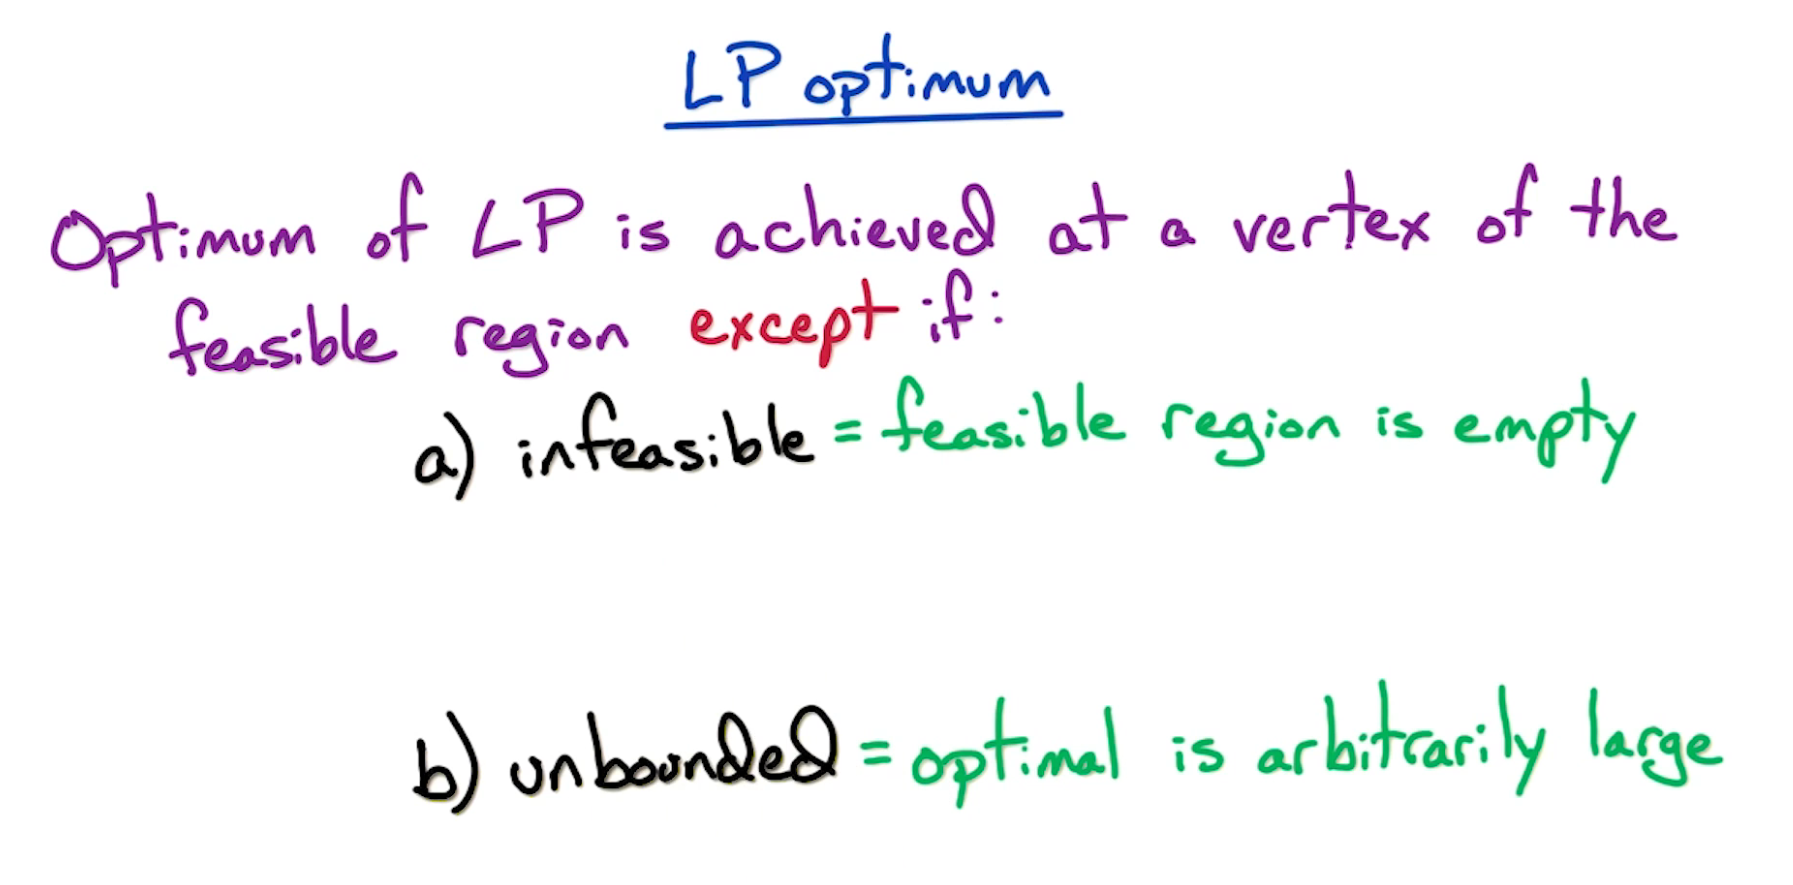 LP optimum
Optimum of LP is achieved at a vertex of the
feasible region except if:
a) infeasible = feasible region is empty
b) unbounded = optimal is arbitrarily large